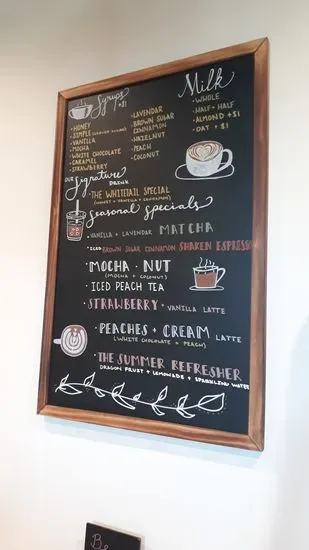 Syrups +$1
• HONEY
• SIMPLE
• VANILLA
• MOCHA
• WHITE CHOCOLATE
• CARAMEL
• STRAWBERRY
• LAVENDAR
• BROWN SUGAR
CINNAMON
• HAZELNUT
• PEACH
• COCONUT
Milk
• WHOLE
• HALF + HALF
• ALMOND +$1
• OAT + $1
OUR Signature
DRINK
• THE WHITETAIL SPECIAL
(HONEY + VANILLA + CINNAMON)
Seasonal Specials
• VANILLA + LAVENDAR MATCHA
• ICED BROWN SUGAR CINNAMON SHAKEN ESPRESSO
• MOCHA • NUT
(MOCHA + COCONUT)
• ICED PEACH TEA
• STRAWBERRY + VANILLA LATTE
• PEACHES + CREAM LATTE
(WHITE CHOCOLATE + PEACH)
• THE SUMMER REFRESHER
DRAGON FRUIT + LEMONADE + SPARKLING WATER
Be